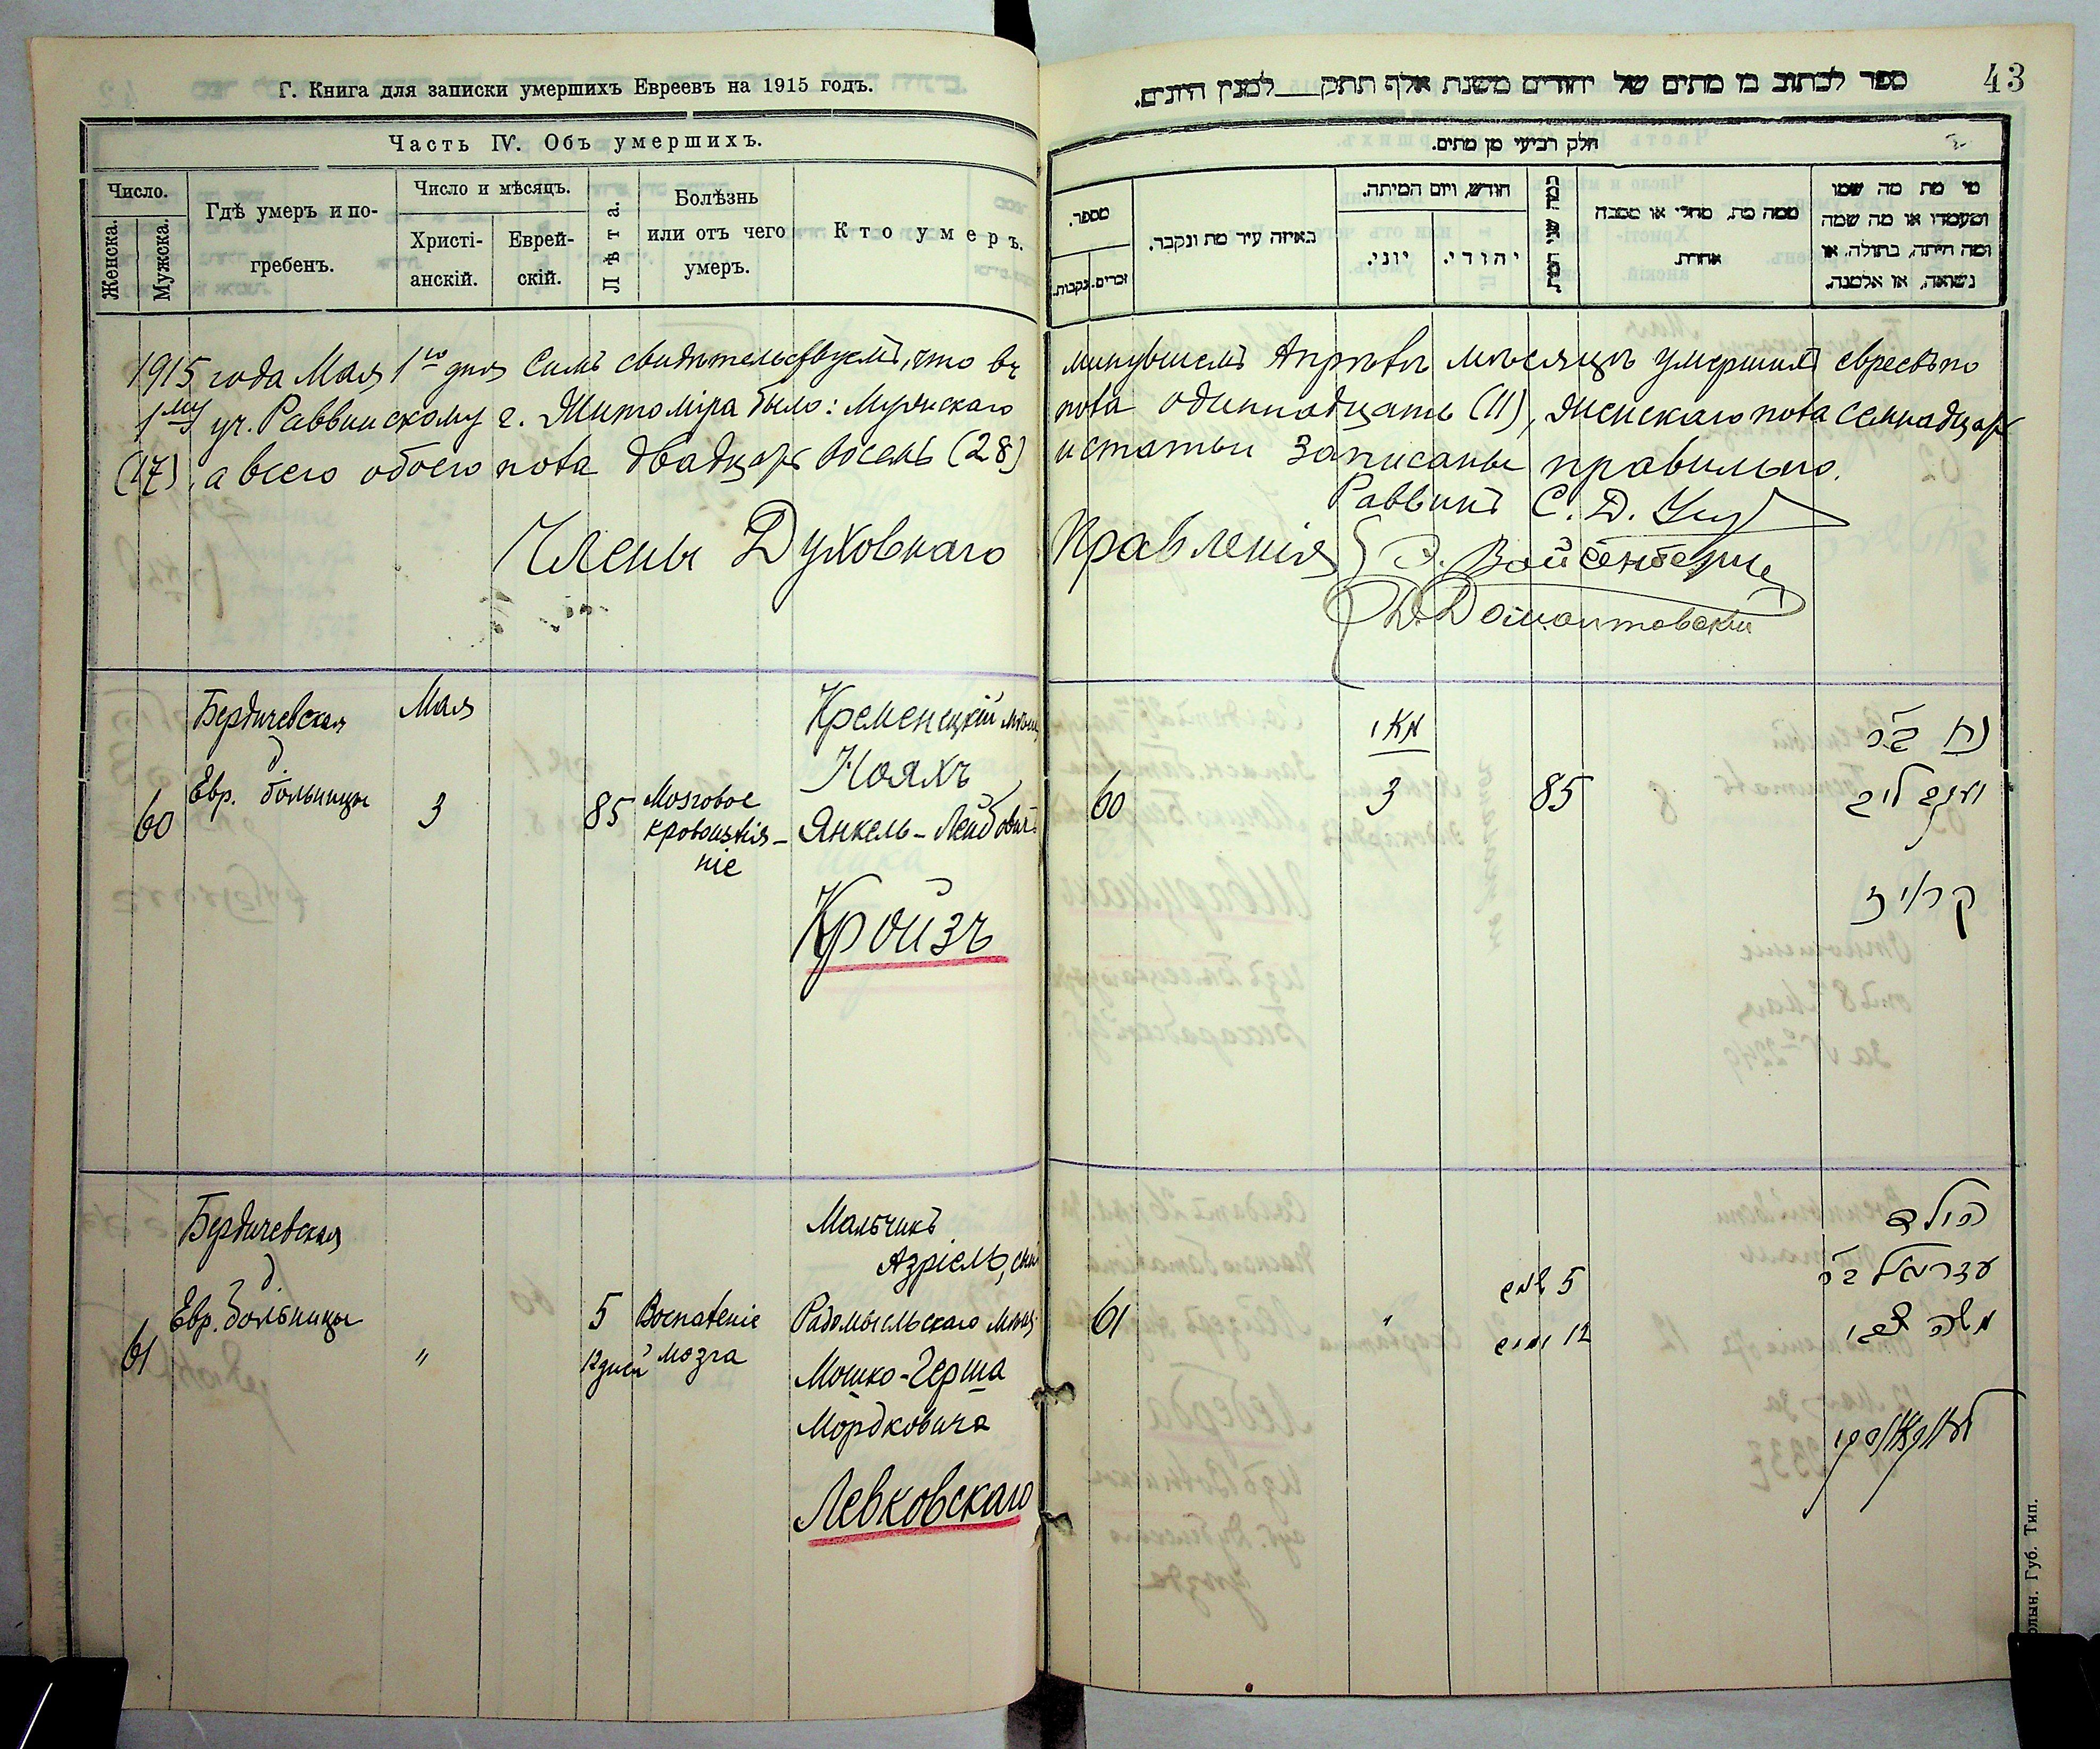 Г. Книга для записки умершихъ Евреевъ на 1915 годъ.
Часть IV. Объ умершихъ.
Число.
Женска.
Мужска.
Гдѣ умеръ и по-
гребенъ.
Число и мѣсяцъ.
Христі-
анскій.
Еврей-
скій.
Лѣта.
Болѣзнь
или отъ чего
умеръ.
Кто умеръ.
1915 года Мая 1го дня Симъ свидѣтельствуемъ, что въ
1му уч. Раввинскому г. Житоміра было: Мужскаго
(17), а всего обоего пола двадцать восемь (28)
Члены Духовнаго
60
Бердичевская
Евр. больницы
Мая
3
85
Мозговое
кровоизлія-
ніе
Кременецкій мѣщ
Нояхъ
Янкель-Лейбович
Кройзъ
61
Бердичевская
Евр. больницы
"
5
12 дней
Воспаленіе
мозга
Мальчикъ
Азріель, сын
Радомысльскаго мѣщ.
Мошко-Герша
Мордковича
Левковскаго
ספר לכתוב בו מתים של יהודים משנת אלף תתק___למנין היונים.
43
חלק רביעי מן מתים.
מספר.
נקבות.
זכרים.
באיזה עיר מת ונקבר.
חודש, ויום המיתה.
יוני.
יהודי.
כמה שני המת
ממה מת, מחלי או מסבה
אחרת.
מי מת מה שמו
ומעמדו או מה שמה
ומה היתה, בתולה, או
נשואה, או אלמנה.
минувшемъ Апрѣлѣ мѣсяцѣ умершихъ евреевъ по
пола одиннадцать (11), женскаго пола семнадцать
и статьи записаны правильно.
Раввинъ С. Д.
Правленія
Д. Домонтовскій
60
מאי
3
85
נח בר
יענקב ליב
קרויז
61
"
5 שנים
12 ימים
הילד
עזריאל בר
משה צבי
לעווקאווסקי
олын. Губ. Тип.